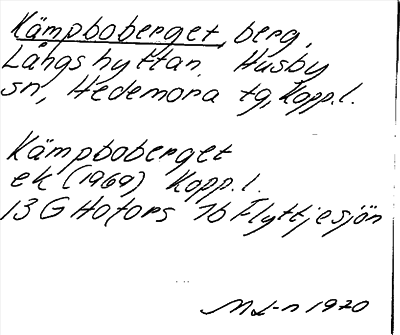 Kämpboberget, berg,
Långshyttan, Husby
sn, Hedemora tg, Kopp. l.
Kämpboberget
ek (1969) Kopp. l.
13 G Hofors 7b Flyttjesjön
1970